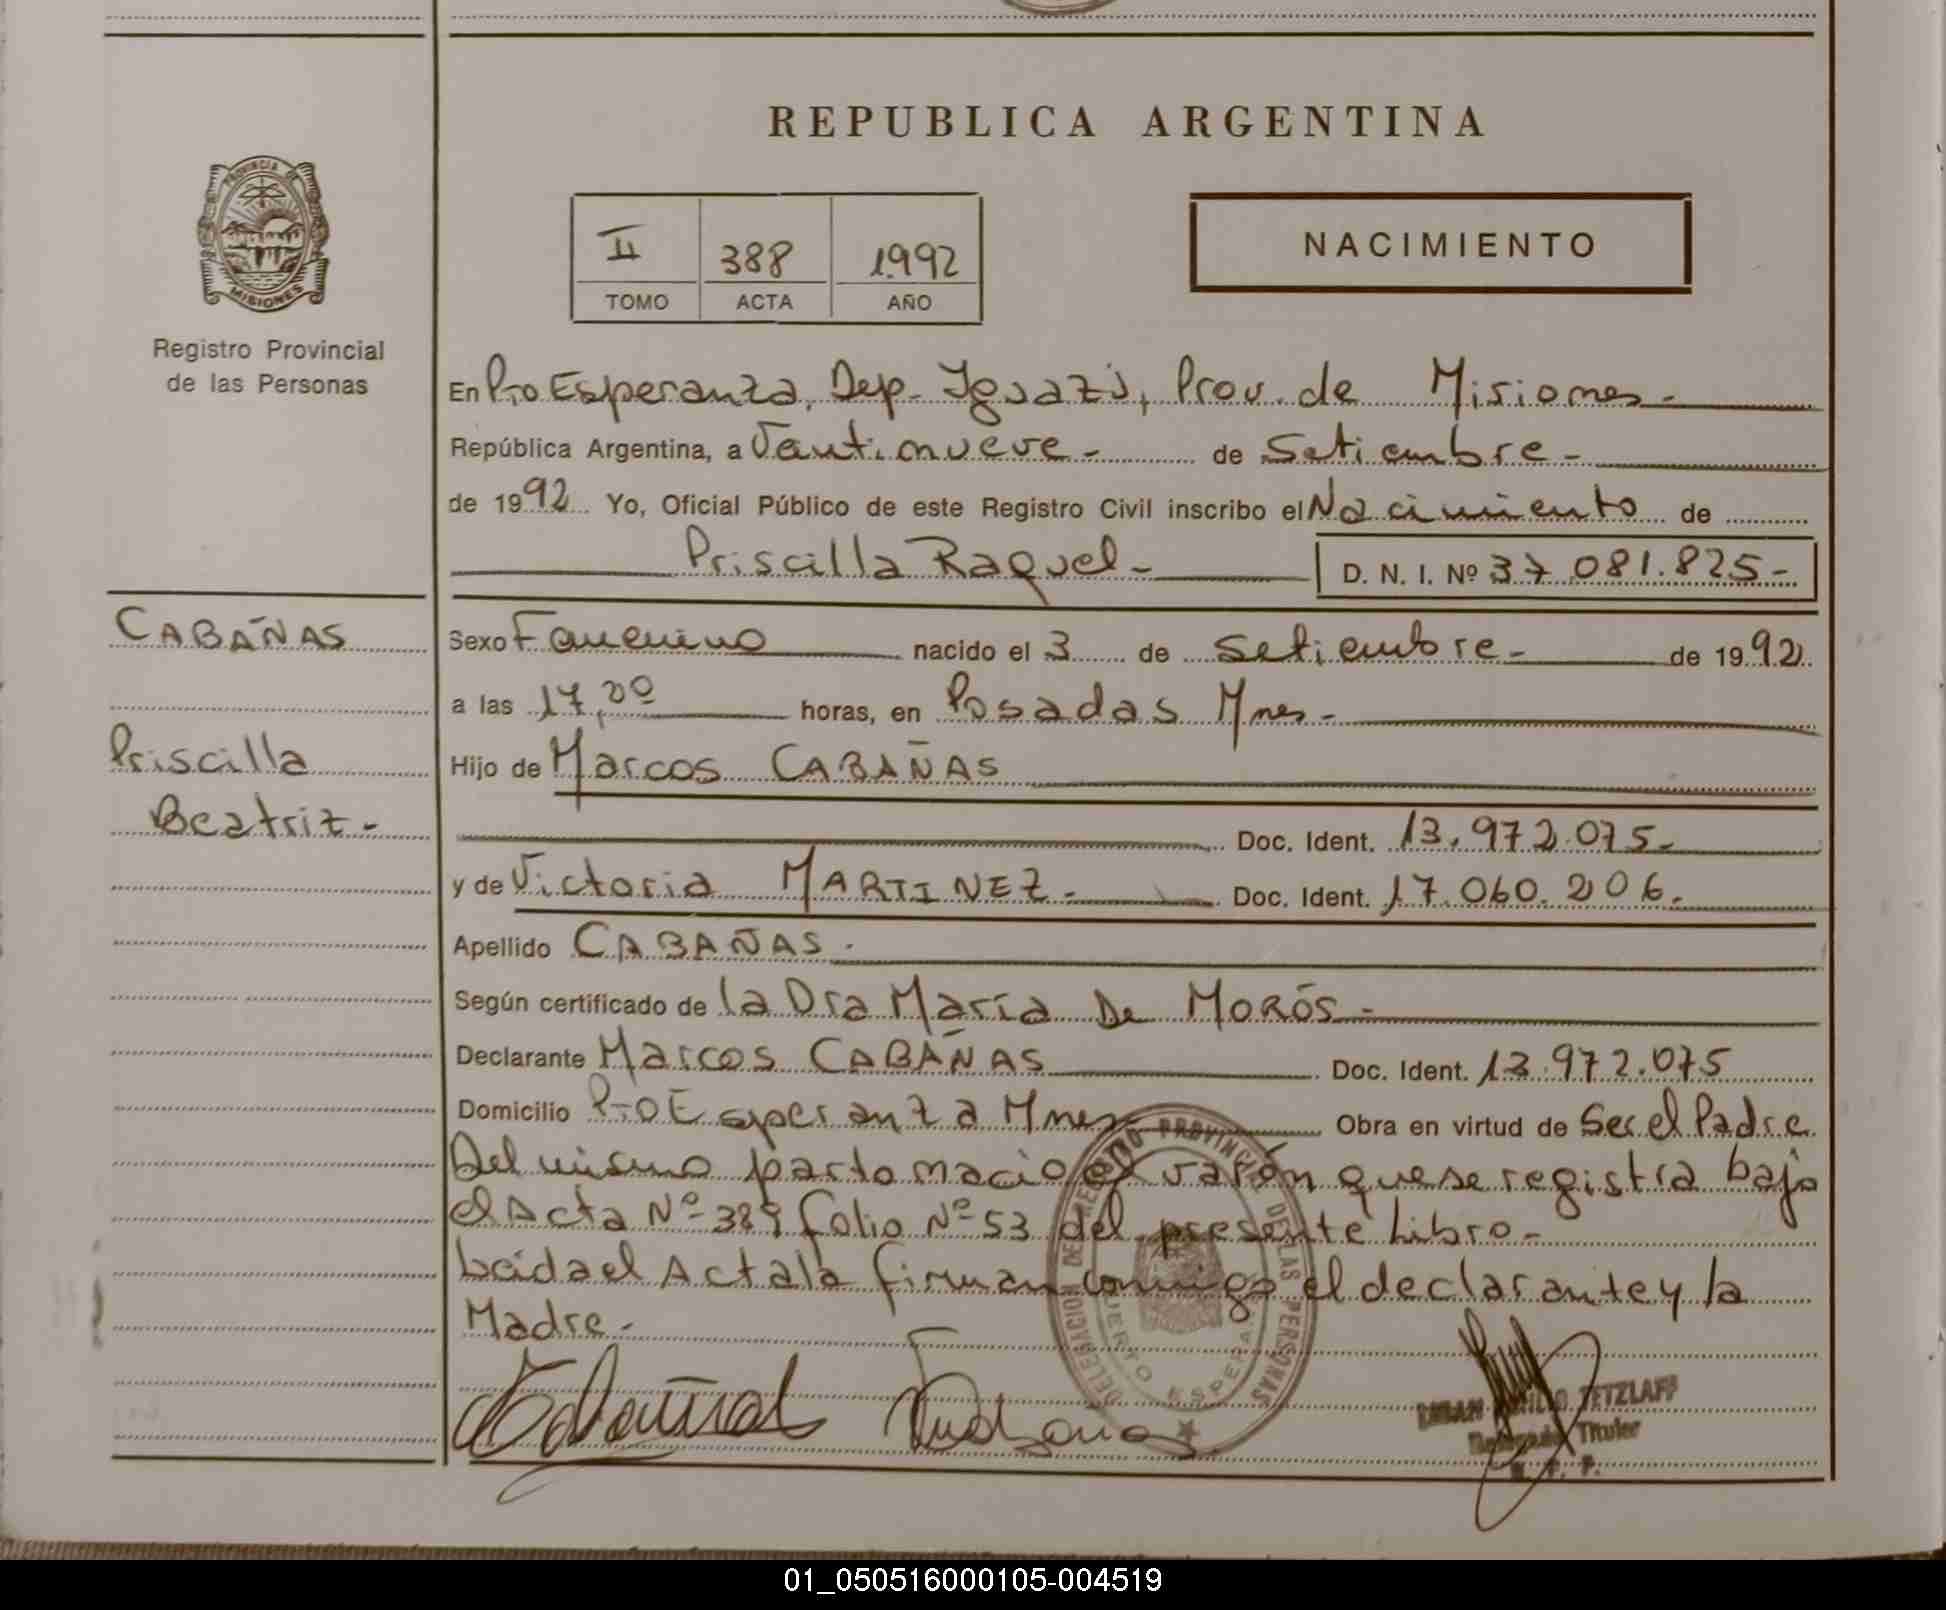 REPUBLICA ARGENTINA
PROVINCIA DE
MISIONES
Registro Provincial
de las Personas
II 388 1992
TOMO ACTA AÑO
NACIMIENTO
En Pto Esperanza, Dep. Iguazú, Prov. de Misiones-
República Argentina, a Veintinueve- de Setiembre-
de 1992 Yo, Oficial Público de este Registro Civil inscribo el Nacimiento de
Priscilla Raquel- D. N. I. Nº 37.081.825-
CABAÑAS
Priscilla
Beatriz-
Sexo Femenino nacido el 3 de Setiembre- de 1992
a las 17,00 horas, en Posadas Mnes-
Hijo de Marcos CABAÑAS
Doc. Ident. 13.972.075-
y de Victoria MARTINEZ- Doc. Ident. 17.060.206-
Apellido CABAÑAS.
Según certificado de la Dra María De MORÓS-
Declarante Marcos CABAÑAS Doc. Ident. 13.972.075
Domicilio Pto Esperanza Mnes Obra en virtud de Ser el Padre
Del mismo parto nacio varón que se registra bajo
el Acta Nº 389 folio Nº 53 del presente Libro-
Leida el Acta la firman conmigo el declarante y la
Madre-
DELEGACION DE REGISTRO PROVINCIAL DE LAS PERSONAS
PUERTO ESPERANZA
TETZLAFF
Delegado Titular
R. P. P.
01_050516000105-004519